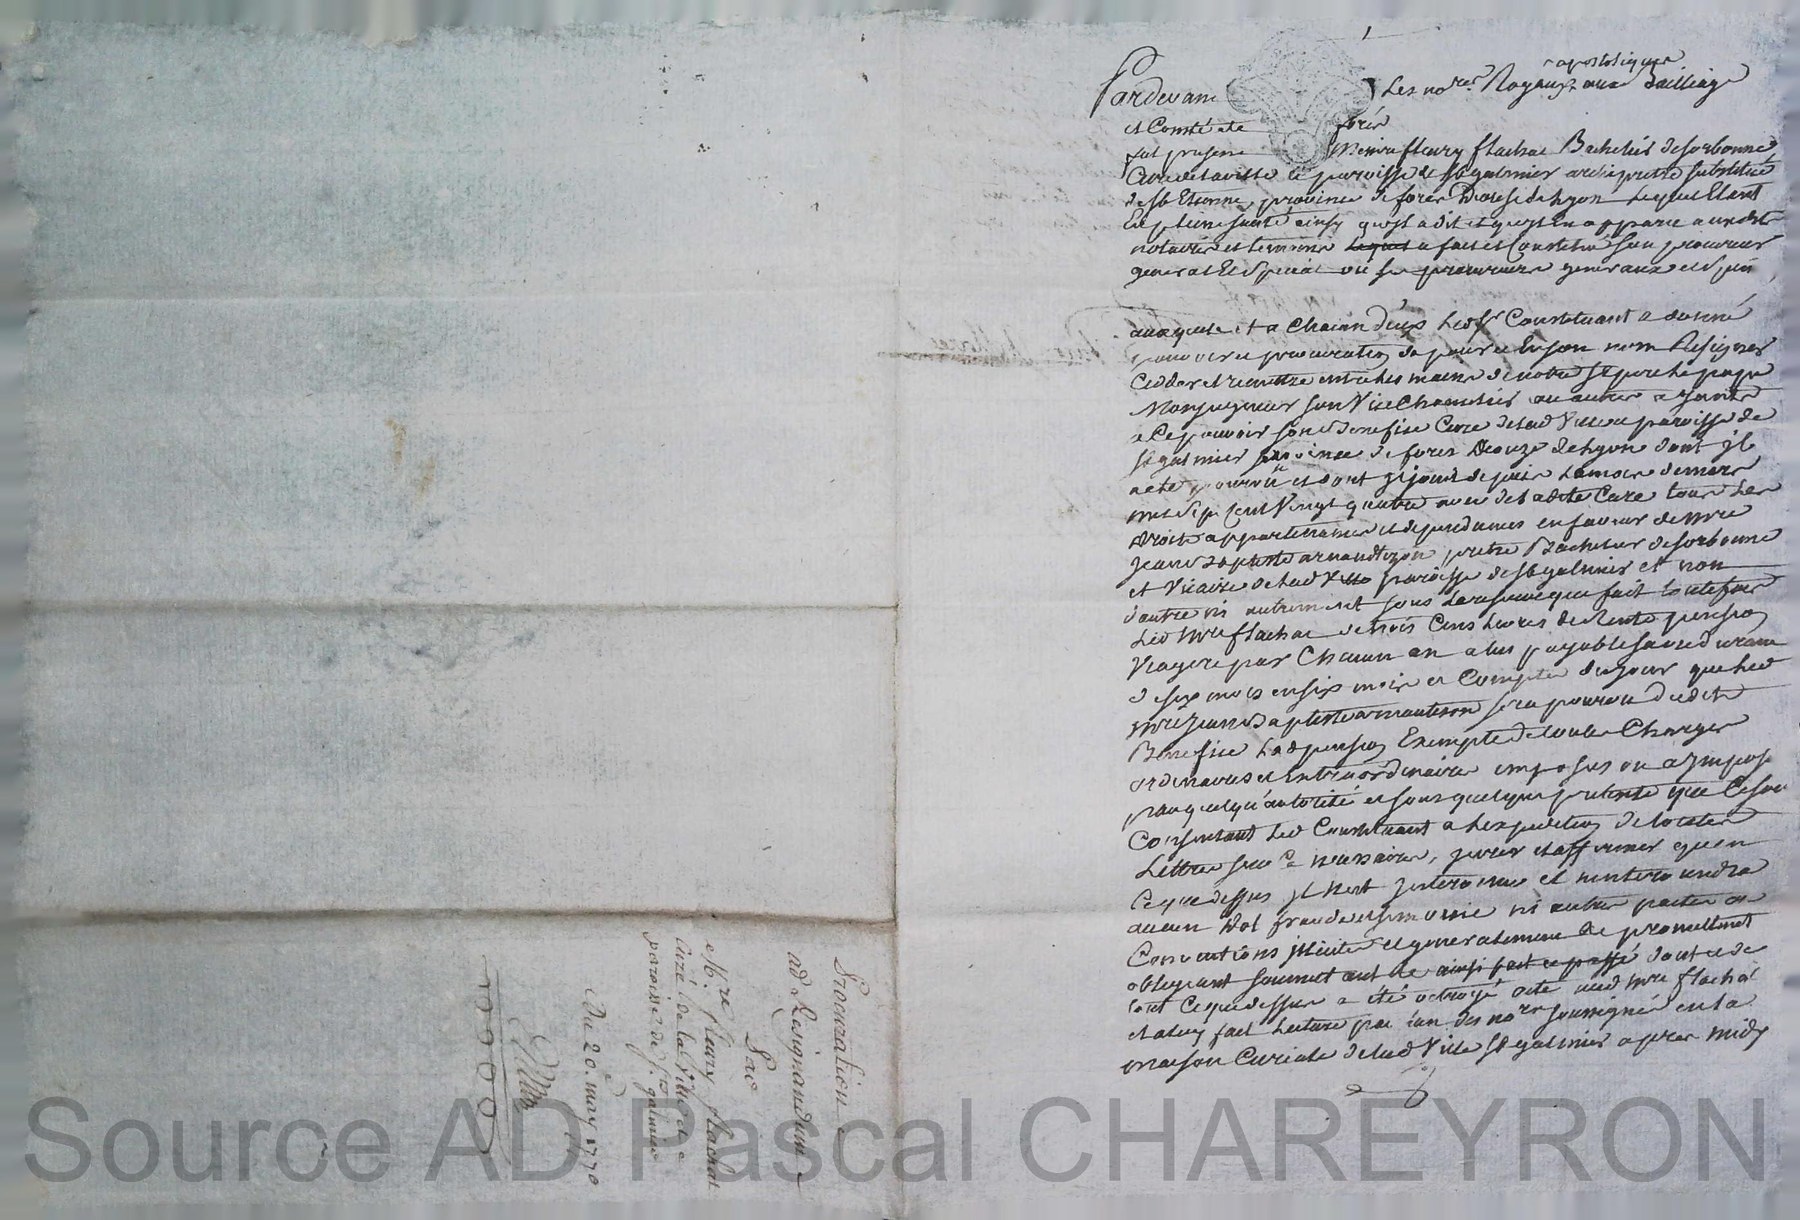 Pardevant Les no.res Royaux aux Bailliage
apostoliques
et Comté de forés
fut present Messire fleury flachat Bachelié de sorbonne
Curé de la ville et paroisse de st galmier archipretre substitué
de st Etienne, province de forés Dioceze de Lyon Lequel Etant
En pleine santé ainsy quoyl a dit et quoyl En apparu auxdits
notaires et temoins lequel a fait et Constitué son procureur
general Et Special ou ses procureurs generaux et speciaux
auxquels et a Chacun d'eux Led sr Constituant a donné
pouvoir et procuration de pour et En son nom Resigner
Ceder et remettre entre les mains de notre st pere le pape
Monseigneur son Vice Chancelier ou autre a yant
a Ce pouvoir son d Benefice Cure de lad Ville et paroisse de
st galmier province de forez Dioceze de Lyon dont il
a eté pourvû et dont il jouit depuis Lannée derniere
mil sept Cent Vingt quatre avec de ladite Cure tous Les
droits appartenances et dependances en faveur de mre
Jean Baptiste arnaud tizon pretre Bachelier de sorbonne
et Vicaire de lad Ville paroisse de st galmier et non
d'autre ni autrement sous La reserve que fait toutefois
Led Mre flachat de trois Cens Livres de Rente pension
Viagere par Chacun an a lui payable sa vie durant
de six mois en six mois a Compter du jour que Led
mre Jean Baptiste arnaud tizon sera pourvu dudit
Benefice Lad pension Exempte de toutes Charges
ordinaires et Extraordinaires imposées ou a Imposer
par quelqu'autorité et sous quelque pretexte que Ce soit
Consentant Led Constituant a Lexpedition de toutes
Lettres sur Ce necessaires, jurer et affirmer quen
Ce que dessus il n'est Intervenu et n'interviendra
aucun dol fraude et simonie ni autres pactes ou
Conventions illicites et generalement &c promettant
obligeant soumettant &c ainsi fait et passé dont et de
tout Ce que dessus a été octroyé acte aud Mre flachat
et a luy fait Lecture par l'un des no.res soussignés en la
maison Curiale de lad Ville St galmier apres midy
Procuration
ad Resignandum
Pae
Mre fleury flachat
Curé de la ville et
paroisse de st. galmier
Du 20. may 1770